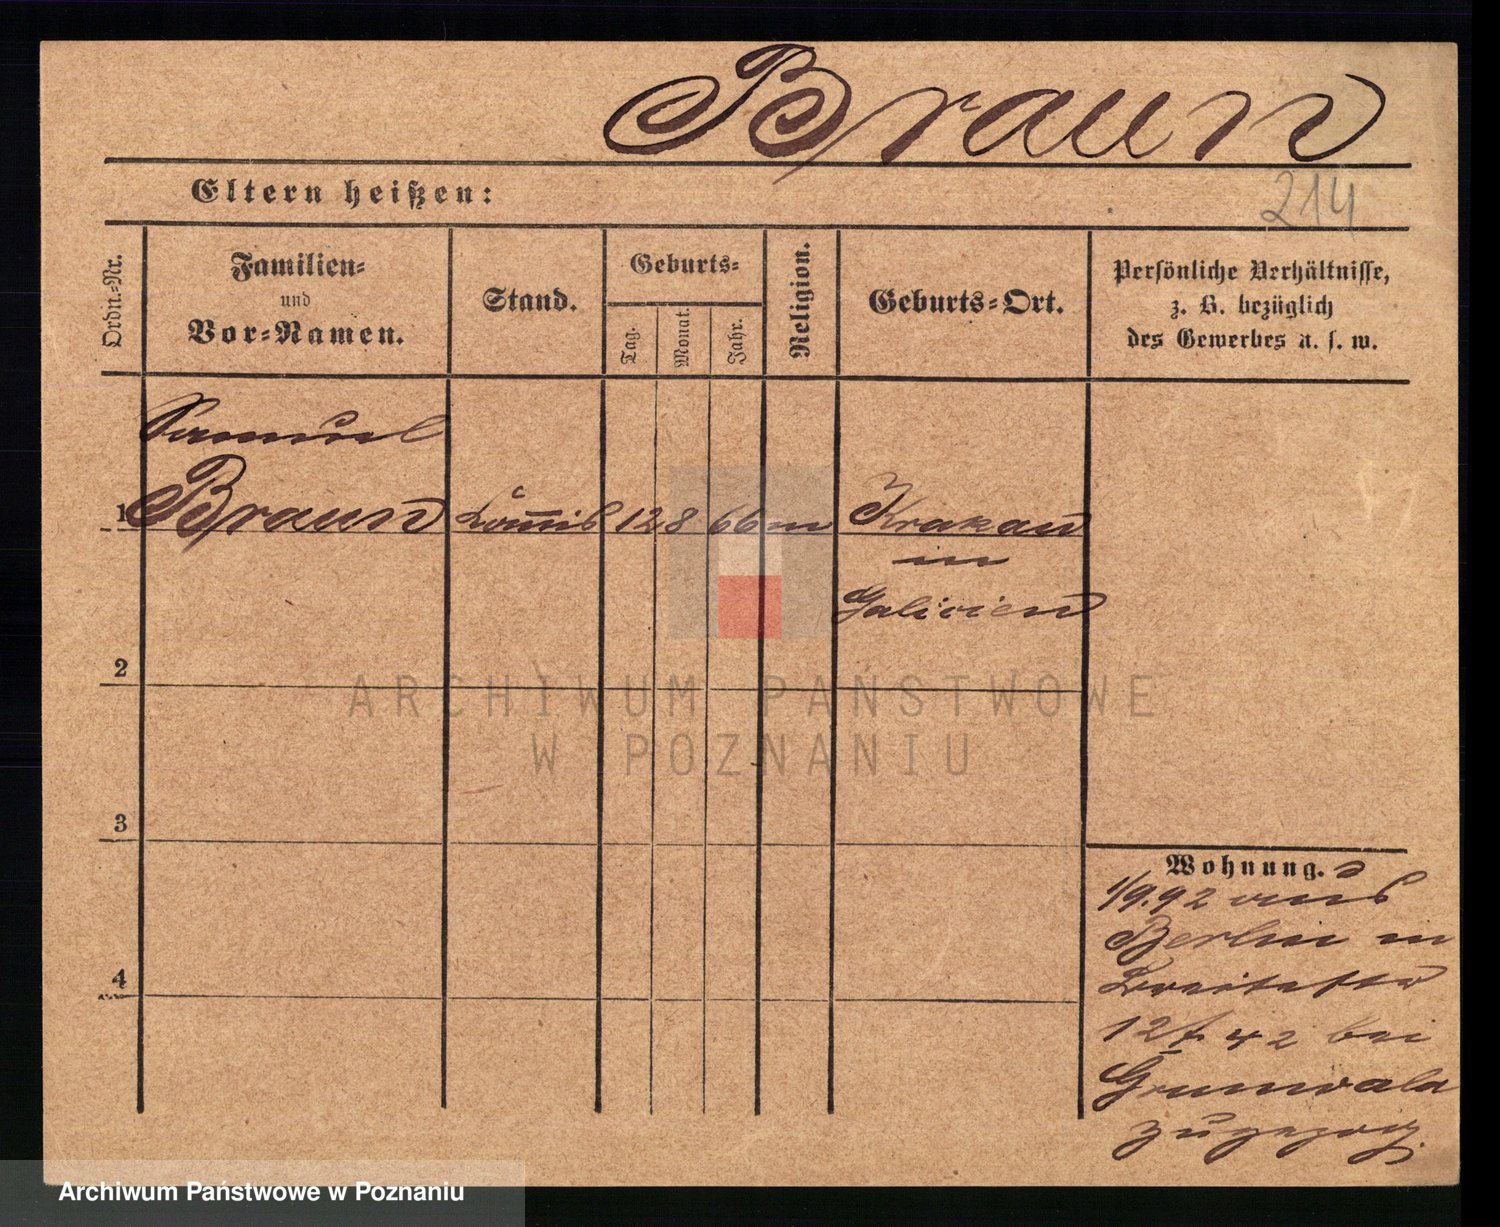 Braun
Eltern heißen:
214
Ordn.-Nr.
Familien-
und
Vor-Namen.
Stand.
Geburts-
Tag.
Monat.
Jahr.
Religion.
Geburts-Ort.
Persönliche Verhältnisse,
z. B. bezüglich
des Gewerbes u. s. w.
Samuel
1 Braun Commis 12 8 66 m Krakau
in
Galizien
2
ARCHIWUM PAŃSTWOWE
W POZNANIU
3
Wohnung.
1/9.92 aus
Berlin in
Breitestr
12 42 bei
Grunwald
zugezog.
4
Archiwum Państwowe w Poznaniu